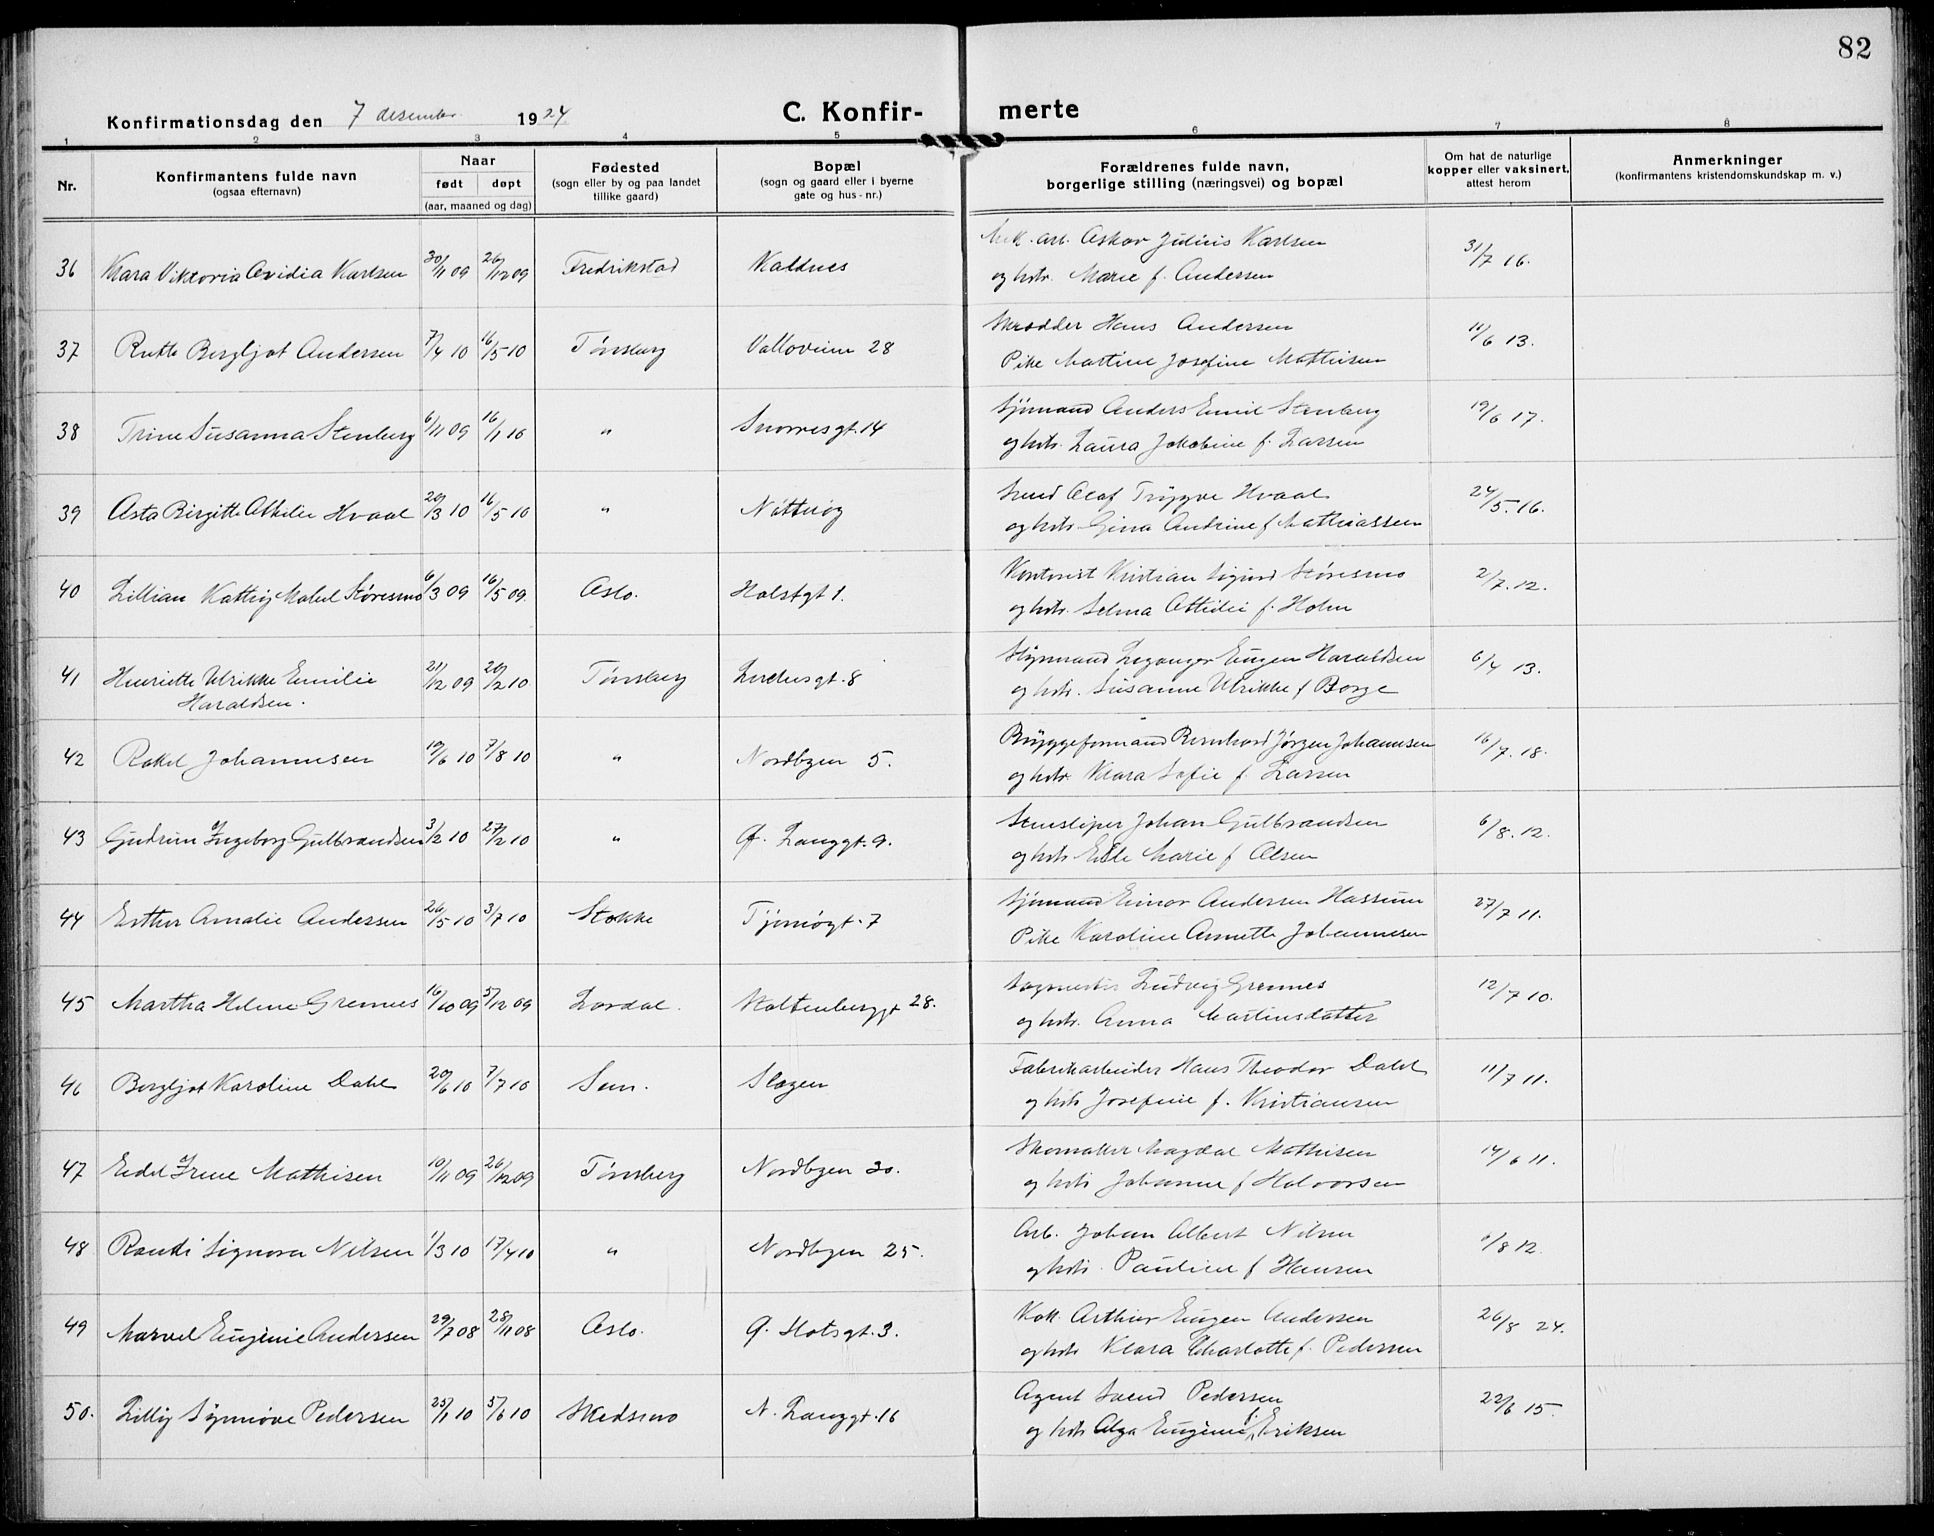 82
Konfirmationsdag den 7 desember 1924
C. Konfir- merte
1 2 3 4 5 6 7 8
Nr.
Konfirmantens fulde navn
(ogsaa efternavn)
Naar
født døpt
(aar, maaned og dag)
Fødested
(sogn eller by og paa landet
tillike gaard)
Bopæl
(sogn og gaard eller i byerne
gate og hus-nr.)
Forældrenes fulde navn,
borgerlige stilling (næringsvei) og bopæl
Om hat de naturlige
kopper eller vaksinert,
attest herom
Anmerkninger
(konfirmantens kristendomskundskap m. v.)
36 Klara Viktoria Ovidia Karlsen 30/11 09 26/12 09 Fredrikstad Kaldnes Mek. arb. Oskar Julius Karlsen 31/7 16.
og hstr. Marie f. Andersen
37 Ruth Bergljot Andersen 7/4 10 16/5 10 Tønsberg Valloveien 28 Skrædder Hans Andersen 11/6 13.
Pike Martine Josefine Mathisen
38 Trine Susanna Stenberg 6/11 09 16/1 10 " Snorresgt. 14 Sjømand Anders Emil Stenberg 19/6 17.
og hstr. Laura Jakobine f. Larsen
39 Asta Birgitte Othilie Hvaal 20/3 10 16/5 10 " Nøtterøy Smed Olaf Trygve Hvaal 24/5. 16.
og hstr. Gina Andrine f Mathiassen
40 Lillian Mabel Støresmo 6/3 09 16/5 09. Oslo. Holstgt 1. Kontorist Kristian Sigurd Støresmo 2/7. 12.
og hstr. Selma Otilie f. Holm
41 Henriette Ulrikke Emilie 21/12 09 20/2 10 Tønsberg gt. 8 Eugen Haraldsen 6/4 13.
Haraldsen.
og hstr. Susanne Ulrikke f Borge
42 Rakel Johannesen 19/6 10 7/8 10 " Nordbyen 5. Bryggeformand Bernhard Jørgen Johannesen 16/7. 18.
og hstr Klara Sofie f. Larsen
43 Gudrun Ingeborg Gulbrandsen 3/2 10 27/2 10 " Ø. Langgt. 9. Stensliper Johan Gulbrandsen 6/8. 12.
og hstr Marie f Olsen
44 Esther Amalie Andersen 26/5 10 3/7 10 Stokke Tjømøgt. 7 Sjømand Einar Andersen Hassum 27/7 11.
Pike Karoline Annette Johannesen
45 Martha Helene Grennes 16/10 09 5/12 09 Lardal. Stoltenberggt 28. Sagmester Ludvig Grennes 12/7 10.
og hstr. Anna Martinsdatter
46 Bergljot Karoline Dahl 20/6 10 7/7 10 Sem. Slagen Fabrikarbeider Hans Theodor Dahl 11/7 11.
og hstr Josefine f. Kristiansen
47 Edel Irene Mathisen 10/11 09 26/12 09 Tønsberg Nordbyen 30. Skomaker Magdal Mathisen 14/6 11.
og hstr Johanne f Halvorsen
48 Randi Signora Nilsen 1/3 10 17/4 10 " Nordbyen 25. Arb. Johan Albert Nilsen /8 12.
og hstr. Pauline f Hansen
49 Marvel Eugenie Andersen 29/7 08 28/11 08 Oslo. gt. 3. Kok. Arthur Eugen Andersen 26/8 24.
og hstr Klara Charlotte f. Pedersen
50. Lilly Synnøve Pedersen 25/1 10 5/6 10 Skedsmo N. Langgt. 16 Agent Svend Pedersen 22/6 15.
og hstr Olga Eugenie f. Eriksen